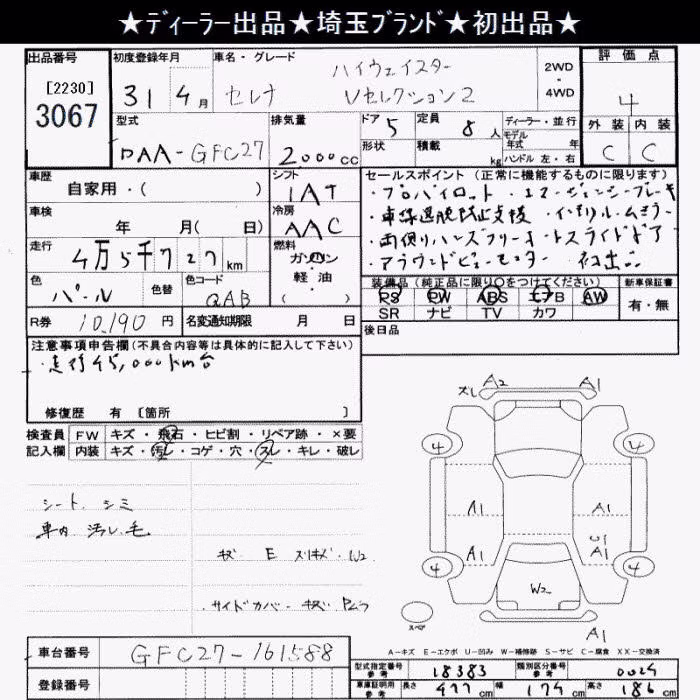 ★ディーラー出品★埼玉ブランド★初出品★
出品番号 初度登録年月 車名・グレード 2WD・4WD 評価点
[2230] 3067 31年4月 セレナ ハイウェイスター Vセレクション2 4
型式 排気量 ドア 5 定員 8人 ディーラー・並行 外装 内装
DAA-GFC27 2000cc 形状 積載 kg モデル年式 年式 ハンドル 左・右 C C
車歴 シフト セールスポイント (正常に機能するものに限ります)
自家用・( ) IAT ・プロパイロット・エマージェンシーブレーキ
車検 冷房 ・車線逸脱防止支援・インテリルームミラー
年 月( 日) AAC ・両側ハンズフリーオートスライドドア
走行 燃料 ・アラウンドビューモニター 初出品
4万5千727km ガソリン・軽油 ( )
色 色替 色コード 装備品 (純正品に限り○をつけてください) 新車保証書
パール QAB PS PW ABS エアB AW 有・無
SR ナビ TV カワ
R券 10,190円 名変通知期限 月 日 後日品
注意事項申告欄 (不具合内容等は具体的に記入して下さい)
・走行45,000km台
修復歴 有 [箇所 ]
検査員 FW キズ・飛石・ヒビ割・リペア跡・×要
記入欄 内装 キズ・汚レ・コゲ・穴・スレ・キレ・破レ
シート シミ
車内 汚レ、毛
キズ E スリキズ・W2
サイドカバー キズ
ズレ A2 A1
4 4
A1 A1
A1 U1 A1
4 4
W2
スペア A1
A－キズ E－エクボ U－凹み W－補修跡 S－サビ C－腐食 XX－交換済
車台番号 GFC27-161588
型式指定番号 参考 18383 類別区分番号 参考 0024
登録番号 車庫証明用 参考 長さ 477cm 幅 174cm 高さ 186cm